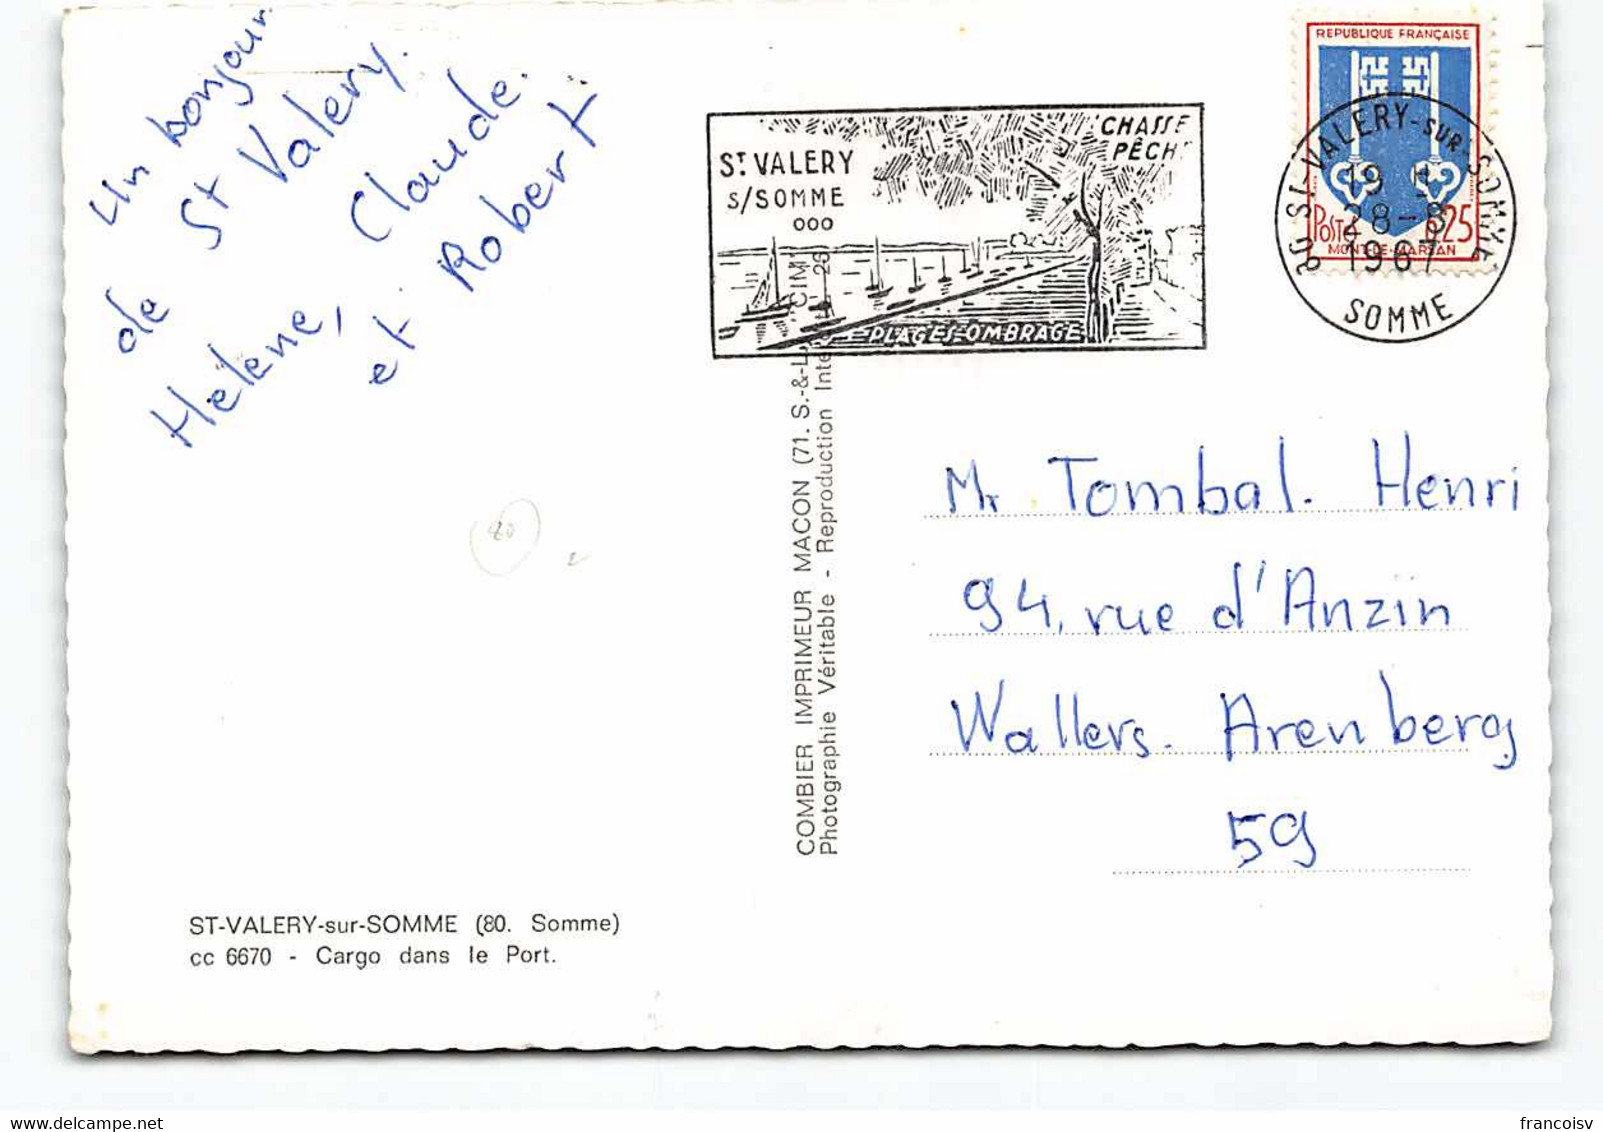 Un bonjour
de St Valery.
Helene, Claude.
et Robert
ST VALERY
S/SOMME
CHASSE
PÊCH
PLAGES-OMBRAGE
REPUBLIQUE FRANÇAISE
POSTES 0,25
MONT-DE-MARSAN
80 ST-VALERY-SUR-SOMME
19 H
28-8
1967
SOMME
COMBIER IMPRIMEUR MACON (71. S.-&-L.) CIM
Photographie Véritable - Reproduction Inte
Mr Tombal. Henri
94, rue d'Anzin
Wallers. Arenberg
59
80
ST-VALERY-sur-SOMME (80. Somme)
cc 6670 - Cargo dans le Port.
francoisv